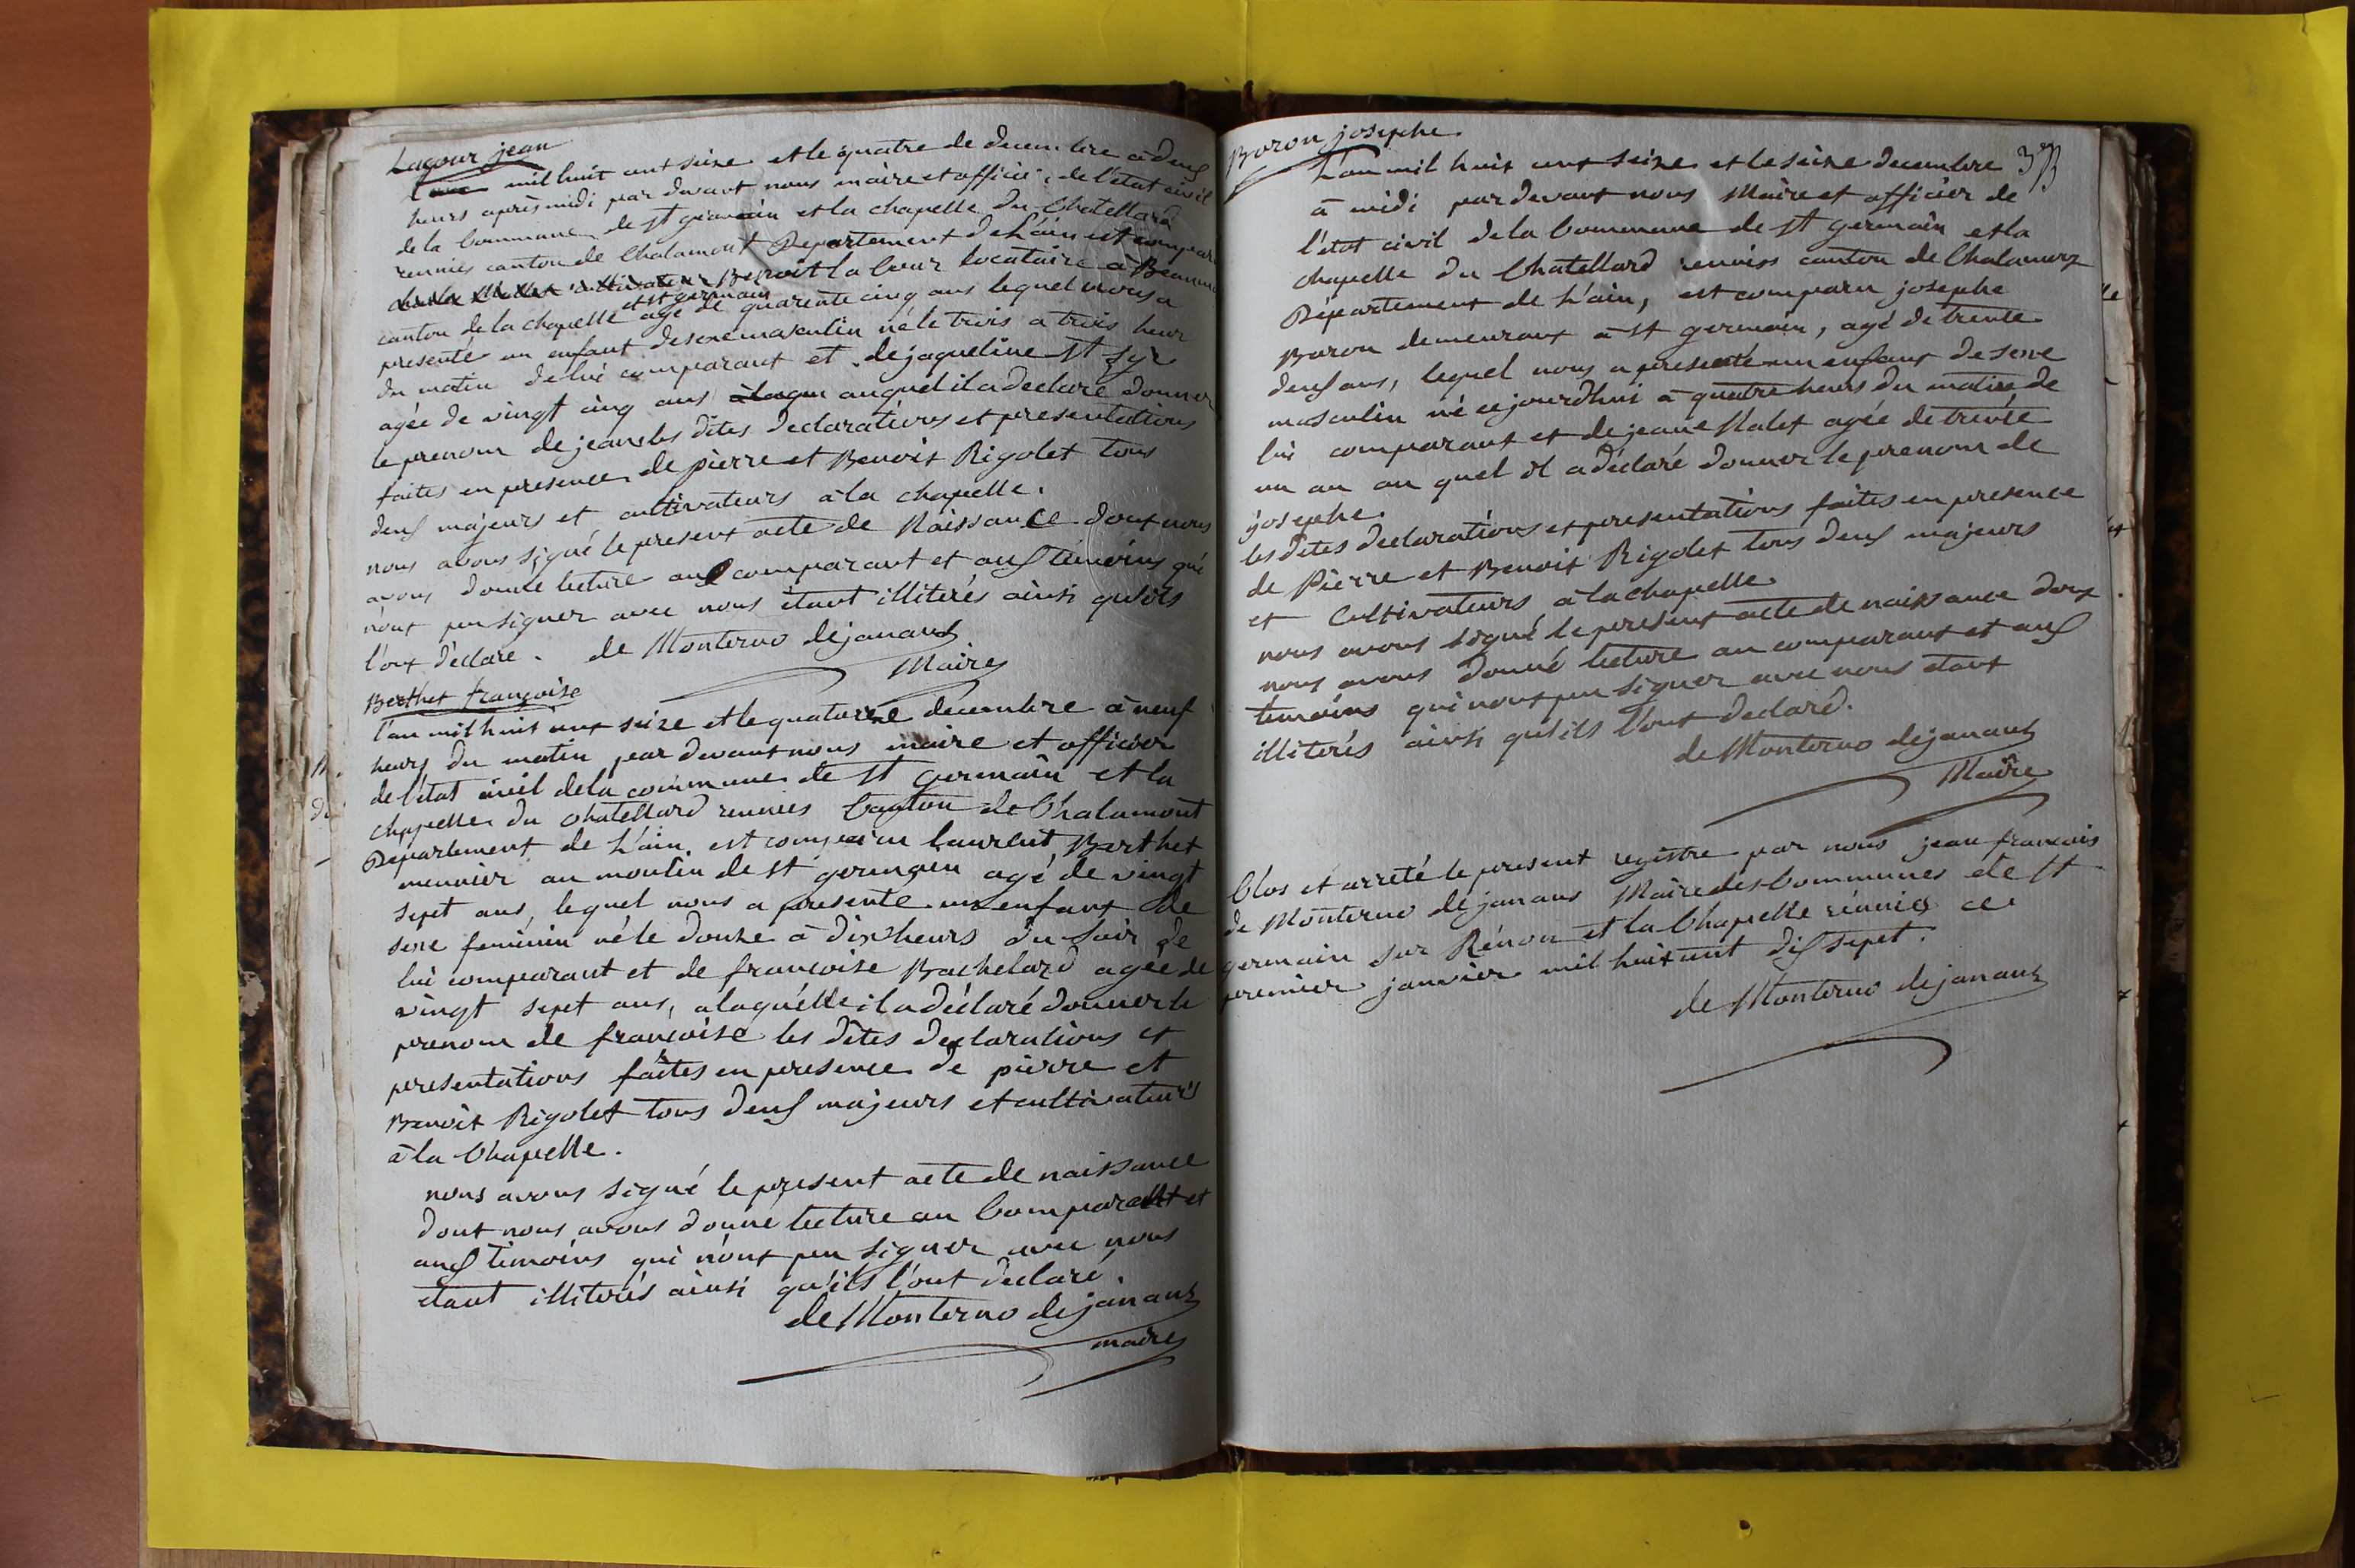 Lacour jean
l'an mil huit cent seize et le quatre de decembre a deux
heurs après midi par devant nous maire et officier de l'état civil
de la Commune de st germain et la chapelle du Chatellard
reunies canton de Chalamont Departement de L'ain est comparu
Benoit la Cour locataire à Beaumont
canton de la chapelle et st germain agé de quarente cinq ans lequel nous a
presenté un enfant de sexe masculin né le trois a trois heur
du matin de lui comparant et de jaqueline st Cyr
agée de vingt cinq ans auquel il a declaré donner
le prenom de jean les dites declarations et presentations
faites en presence de pierre et Benoit Rigolet tous
deux majeurs et cultivateurs à la chapelle.
nous avons signé le present acte de Naissance dont nous
avons donné lecture au comparant et aux temoins qui
n'ont pu signer avec nous étant illiterés ainsi qu'ils
l'ont déclaré. de Monterno dejanans
Maire
Berthet françoise
l'an mil huit cent seize et le quatorze decembre à neuf
heurs du matin par devant nous maire et officier
de l'état civil de la commune de st germain et la
chappelle du chatellard reunies Canton de Chalamont
Departement de L'ain. est comparu laurent Berthet
meunier au moulin de st germain agé de vingt
sept ans, lequel nous a presenté un enfant de
sexe feminin né le douze à dix heurs du soir de
lui comparant et de françoise Bachelard agée de
vingt sept ans, a laquelle il a déclaré donner le
prenom de françoise les dites declarations et
presentations faites en presence de pierre et
Benoit Rigolet tous deux majeurs et cultivateurs
à la Chapelle.
nous avons signé le present acte de naissance
dont nous avons donné lecture au Comparant et
aux témoins qui n'ont pu signer avec nous
etant illiterés ainsi qu'ils l'ont declaré.
de Monterno dejanans
maire
Boron josephe.
L'an mil huit cent seize et le seize decembre
à midi par devant nous Maire et officier de
l'état civil de la Commune de st germain et la
chapelle du Chatellard reunies canton de Chalamont
Département de L'ain, est comparu josephe
Boron demeurant à st germain, agé de trente
deux ans, lequel nous a presenté un enfant de sexe
masculin né cejourdhui à quatre heurs du matin de
lui comparant et de jeane Nalet agée de trente
un an au quel il a déclaré donner le prenom de
josephe.
les dites declarations et presentations faites en presence
de Pierre et Benoit Rigolet tous deux majeurs
et Cultivateurs à la chapelle.
nous avons signé le present acte de naissance dont
nous avons donné lecture au comparant et aux
temoins qui nont pu signer avec nous etant
illiterés ainsi qu'ils l'ont declaré.
de Monterno dejanans
Maire
Clos et arreté le present registre par nous jean françois
de Monterno dejanans Maire des Communes de st
germain sur Rénon et la Chapelle réunies ce
premier janvier mil huit cent dix sept.
de Monterno dejanans